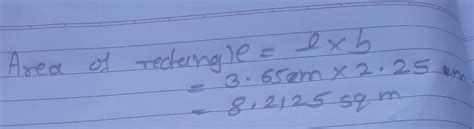 Area of rectangle = l x b
= 3.65cm x 2.25 cm
= 8.2125 sq m